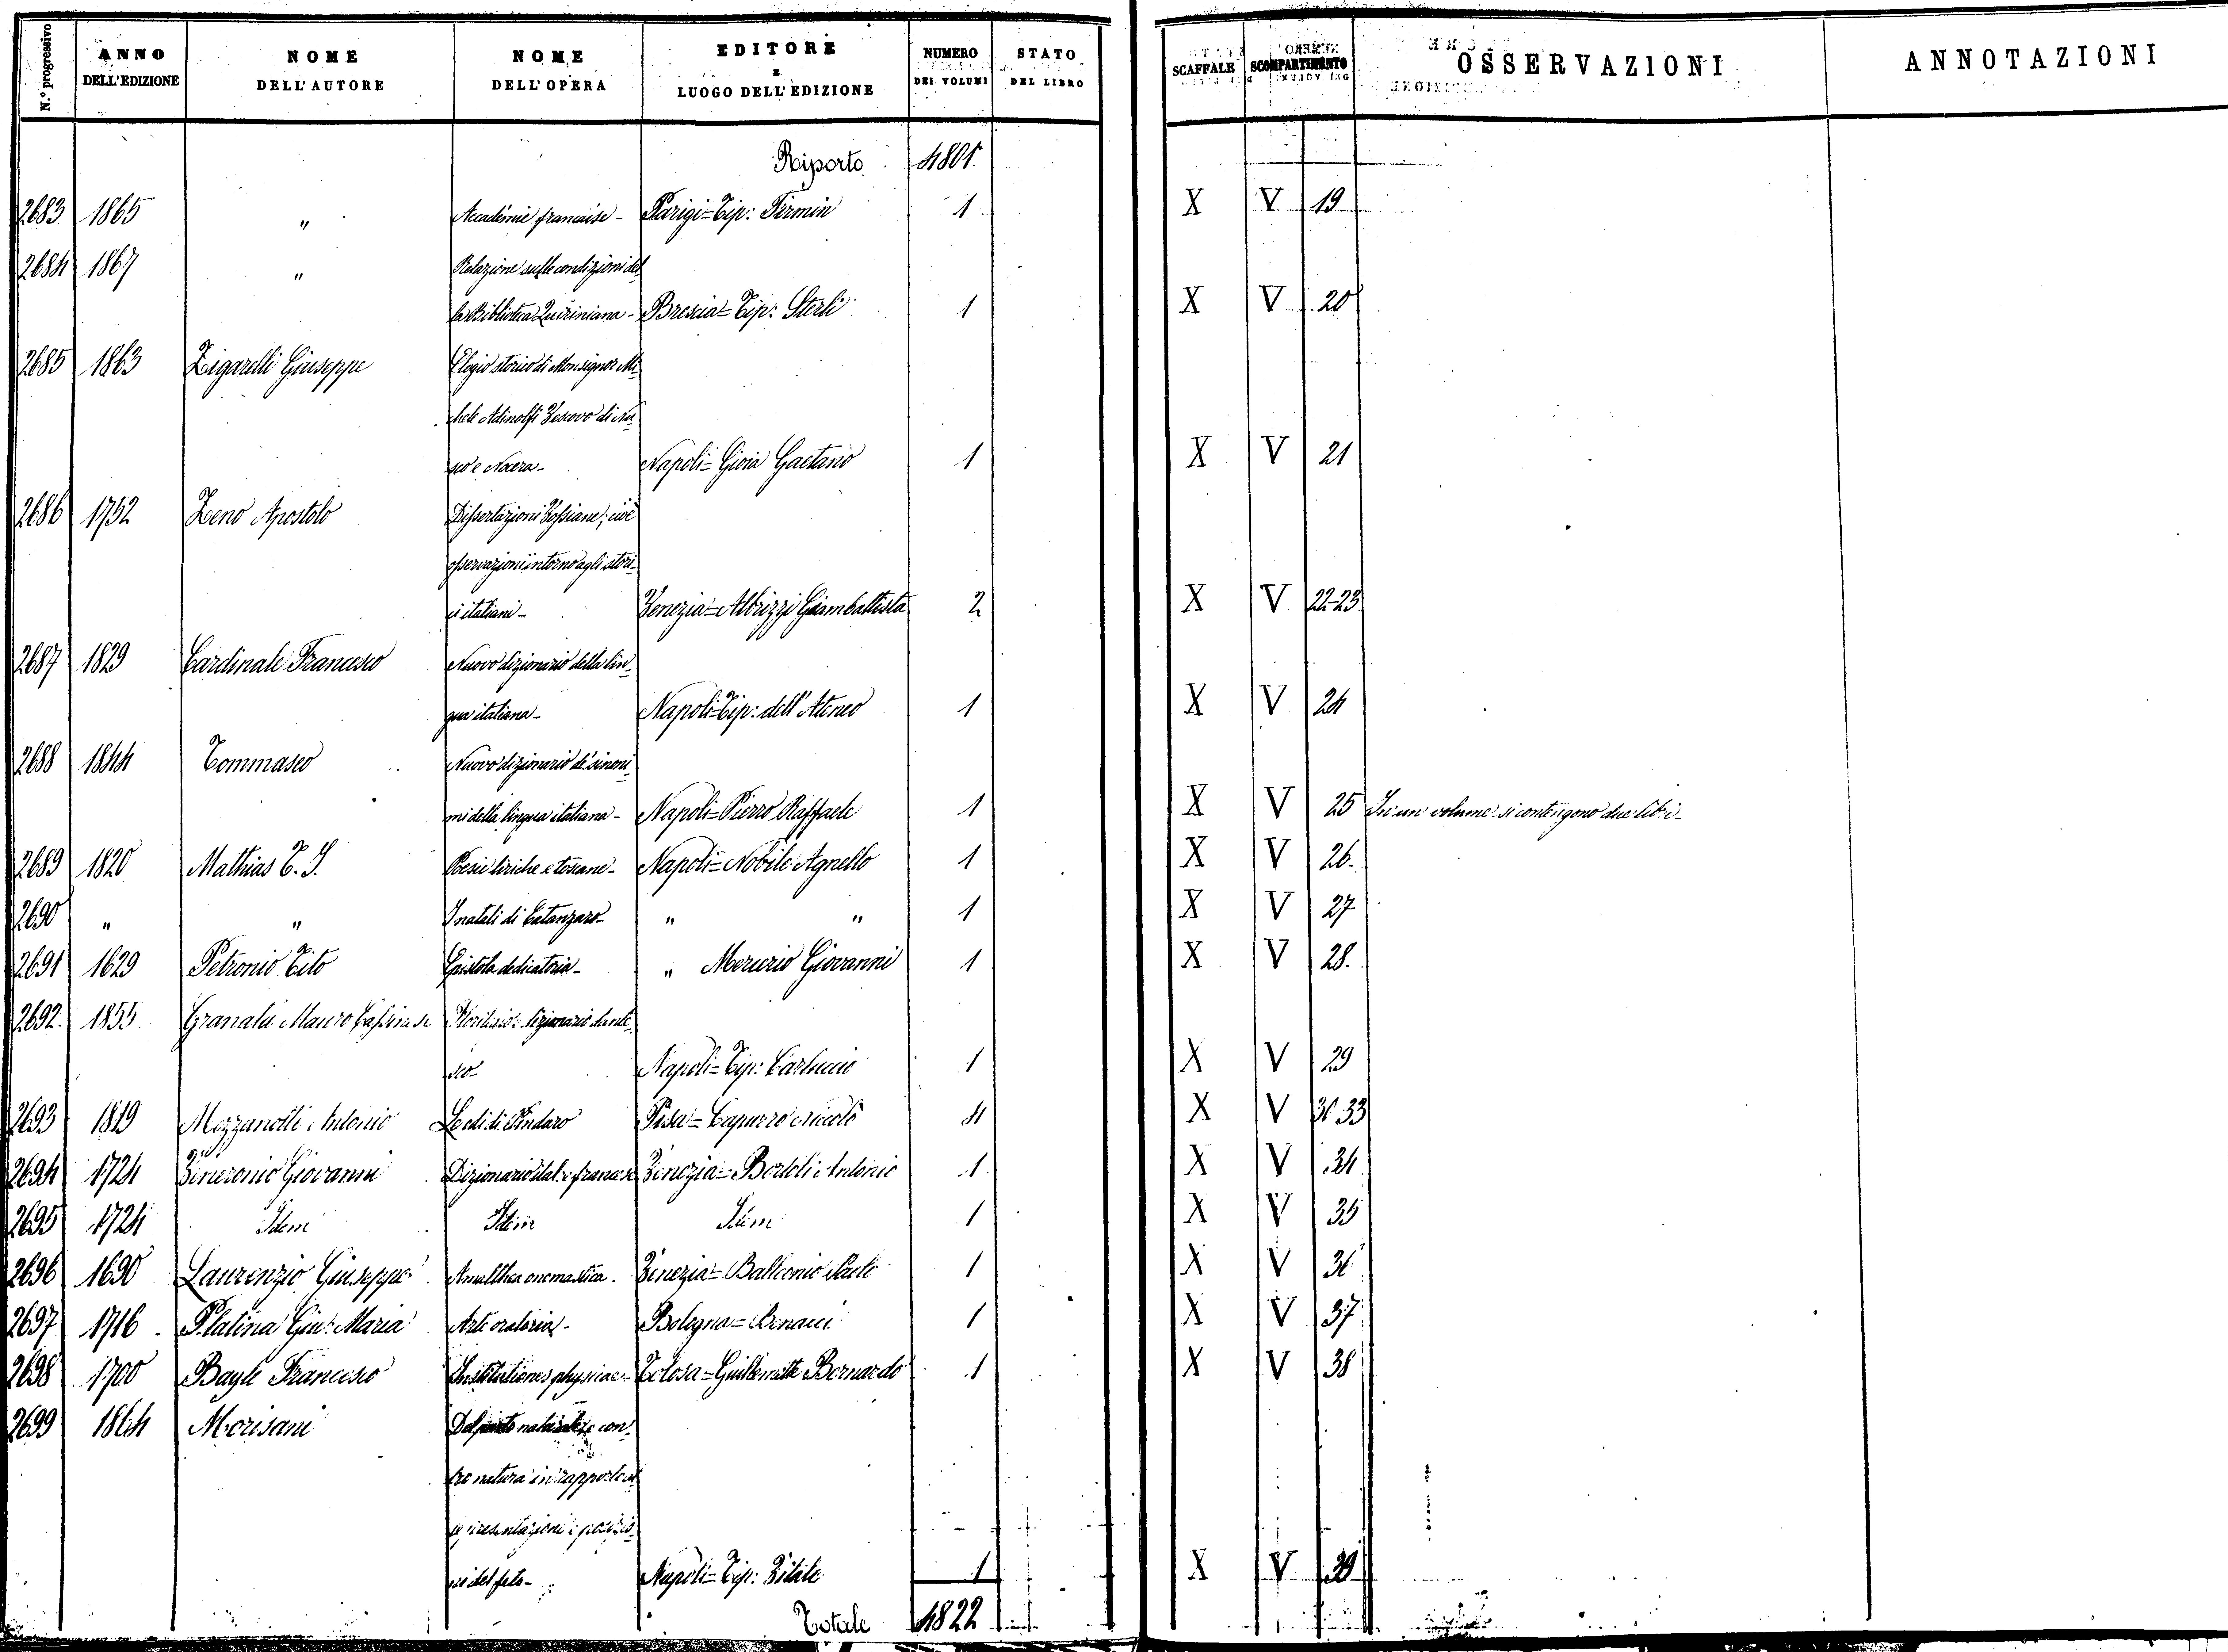 N.º progressivo | ANNO DELL'EDIZIONE | NOME DELL'AUTORE | NOME DELL'OPERA | EDITORE E LUOGO DELL'EDIZIONE | NUMERO DEI VOLUMI | STATO DEL LIBRO | SCAFFALE | SCOMPARTIMENTO | OSSERVAZIONI | ANNOTAZIONI
Riporto 4801
2683 1865 " Académie francaise - Parigi = Tip: Firmin 1 X V 19
2684 1867 " Relazione sulle condizioni del
la Biblioteca Quiriniana - Brescia = Tip: Sterli 1 X V 20
2685 1863 Zigarelli Giuseppe Elogio storico di Monsignor Mi
chele Adinolfi Vescovo di Nu
sco e Nocera - Napoli = Gioia Gaetano 1 X V 21
2686 1752 Zeno Apostolo Dissertazioni Vossiane; cioè
osservazioni intorno agli stori
ci italiani - Venezia = Albrizzi Giambattista 2 X V 22-23
2687 1829 Cardinale Francesco Nuovo dizionario della lin
gua italiana - Napoli = Tip: dell'Ateneo 1 X V 24
2688 1844 Tommaseo Nuovo dizionario de' sinoni
mi della lingua italiana - Napoli = Pierro Raffaele 1 X V 25 In un volume si contengono due libri -
2689 1820 Mathias T. J. Poesie liriche e toscane - Napoli = Nobile Agnello 1 X V 26.
2690 " " I natali di Catanzaro - " " 1 X V 27
2691 1629 Petronio Tito Epistola dedicatoria - " Mercurio Giovanni 1 X V 28.
2692. 1855 Granata Mauro Cassinese dizionario dante
sco - Napoli = Tip: Carluccio 1 X V 29
2693 1819 Mezzanotti Antonio Le odi di Pindaro Pisa = Capurro Niccolò 4 X V 30 33
2694 1724 Veneronio Giovanni Dizionario ital: e francese Venezia = Bortoli Antonio 1 X V 34
2695 1724 Idem Idem Idem 1 X V 35
2696 1690 Laurenzio Giuseppe Amalthea onomastica - Venezia = Balleonio Paolo 1 X V 36
2697 1716 Platina Giu: Maria Arte oratoria - Bologna = Benacci 1 X V 37
2698 1700 Bayle Francesco Institutiones physicae - Tolosa = Guillemette Bernardo 1 X V 38
2699 1864 Morisani Del parto naturale e con
tro natura in rapporto al
le presentazioni e posizio
ni del feto - Napoli = Tip: Vitale 1 X V 39
Totale 4822